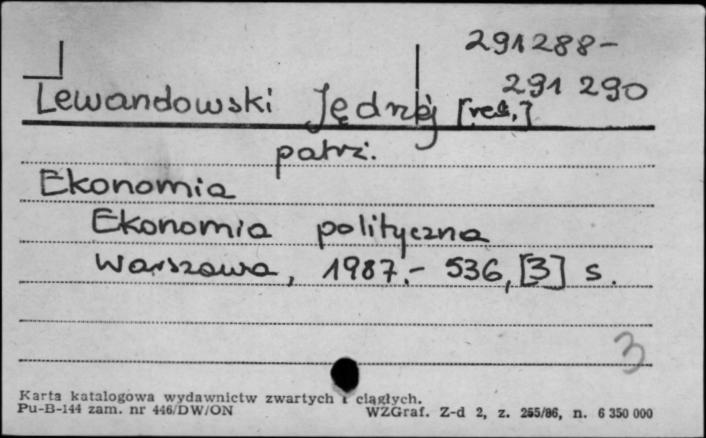 291288-
291 290
Lewandowski Jędrzej [red.]
patrz.
Ekonomia
Ekonomia polityczna
Warszawa, 1987.- 536, [3] s.
3
Karta katalogowa wydawnictw zwartych i ciągłych.
Pu-B-144 zam. nr 446/DW/ON WZGraf. Z-d 2, z. 255/86, n. 6 350 000